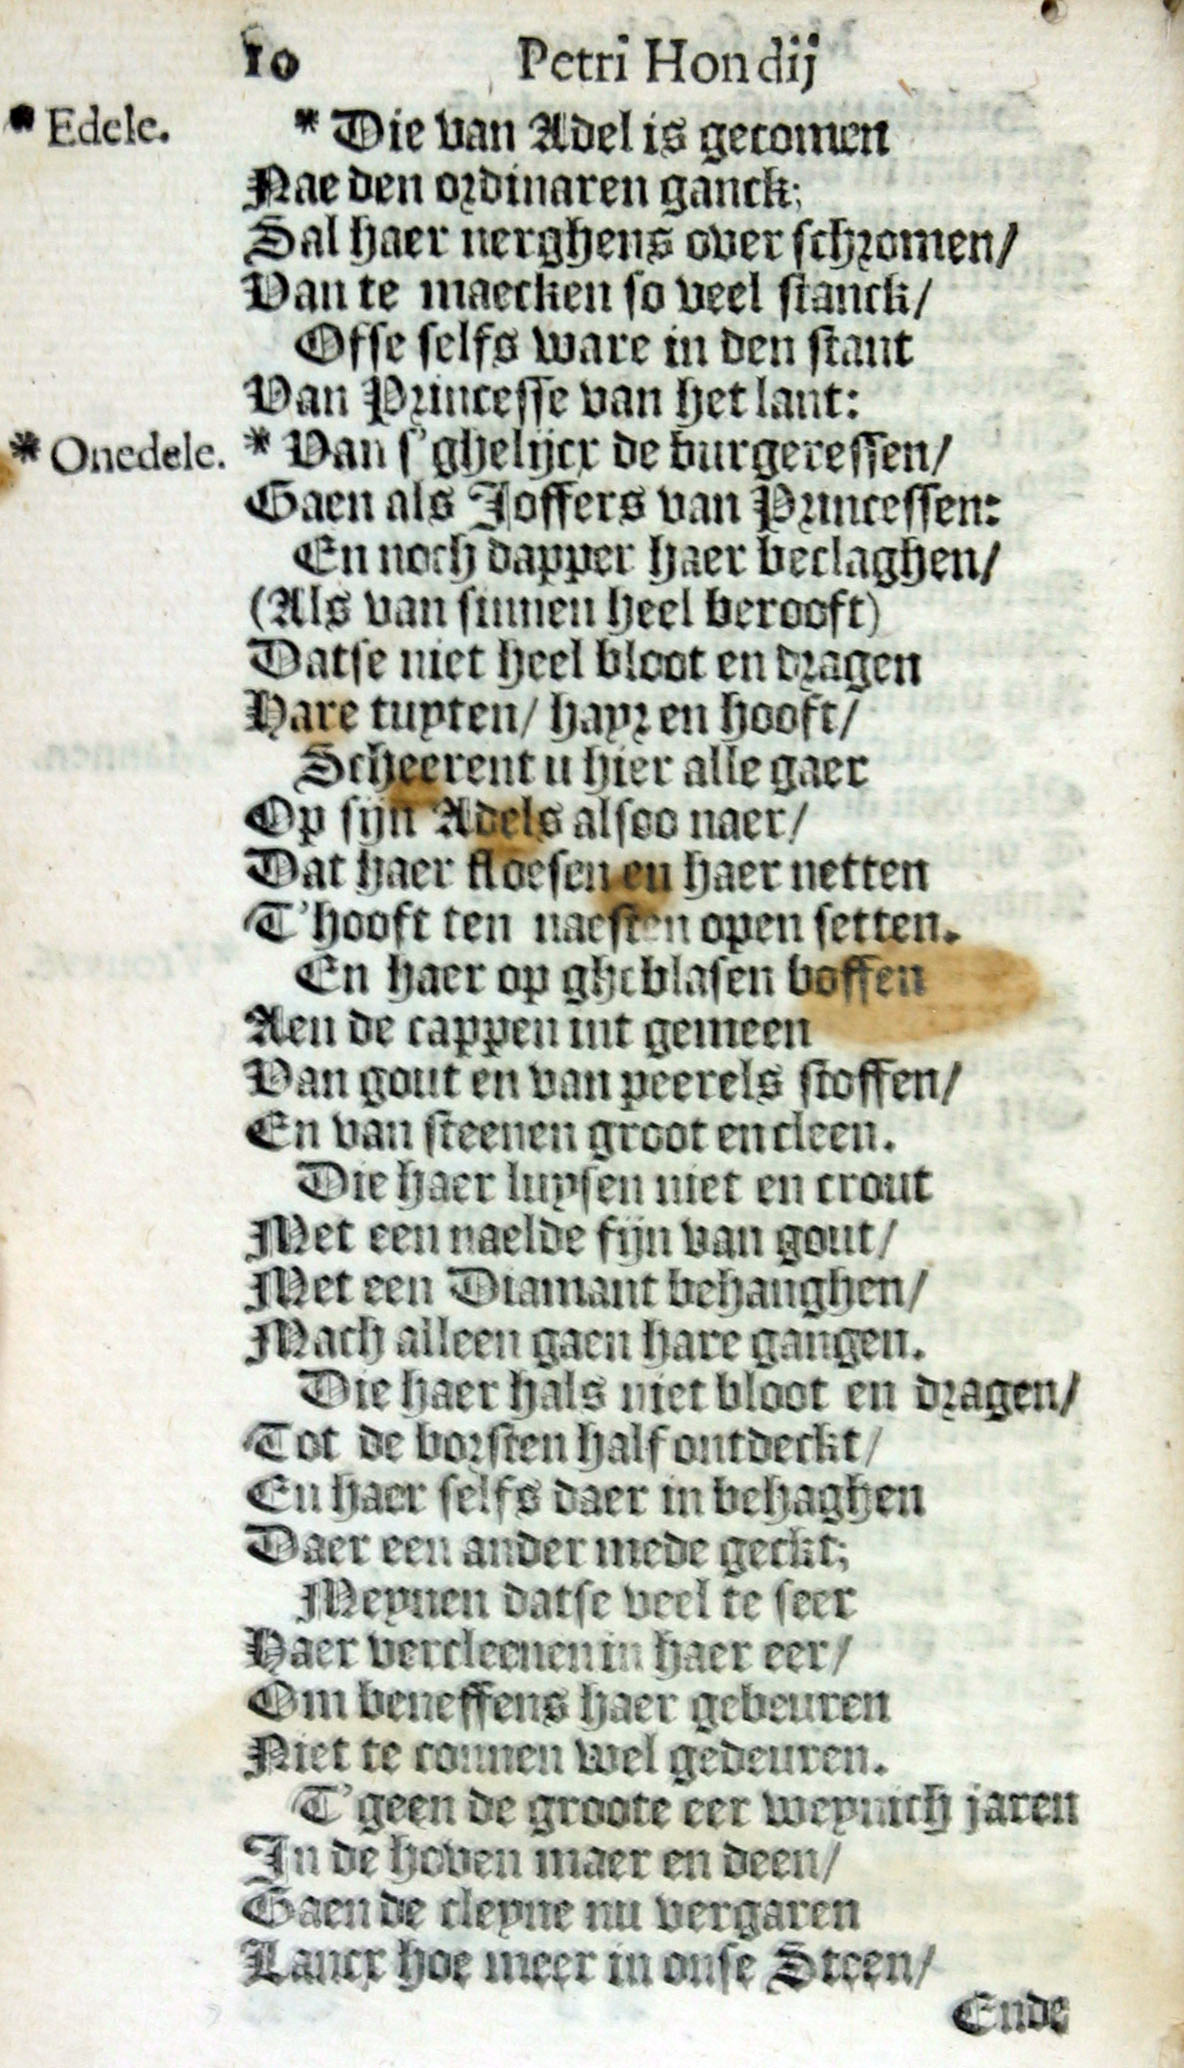 10 Petri Hondij
* Edele.
* Die van Adel is gecomen
Nae den ordinaren ganck;
Sal haer nerghens over schromen/
Van te maecken so veel stanck/
Ofse selfs ware in den stant
Van Princesse van het lant:
* Onedele.
* Van s'ghelijcx de burgeressen/
Gaen als Joffers van Princessen:
En noch dapper haer beclaghen/
(Als van sinnen heel berooft)
Datse niet heel bloot en dragen
Hare tuyten/ hayr en hooft/
Scheerent u hier alle gaer
Op sijn Adels alsoo naer/
Dat haer floesen en haer netten
T'hooft ten naesten open setten.
En haer op gheblasen boffen
Aen de cappen int gemeen
Van gout en van peerels stoffen/
En van steenen groot en cleen.
Die haer luysen niet en crout
Met een naelde fijn van gout/
Met een Diamant behanghen/
Mach alleen gaen hare gangen.
Die haer hals niet bloot en dragen/
Tot de borsten half ontdeckt/
En haer selfs daer in behaghen
Daer een ander mede geckt;
Meynen datse veel te seer
Haer vercleenen in haer eer/
Om beneffens haer gebeuren
Niet te connen wel gedeuren.
T'geen de groote eer weynich jaren
In de hoven maer en deen/
Gaen de cleyne nu vergaren
Lancx hoe meer in onse Steen/
Ende